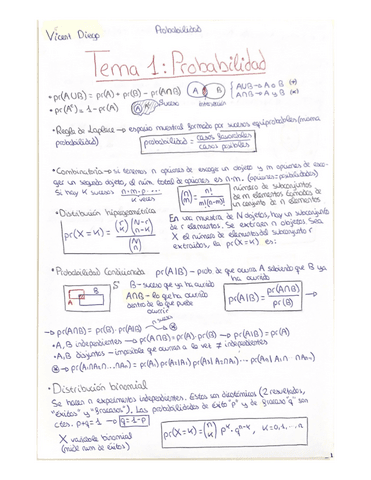 Vicent Diego
Probabilidad
Tema 1: Probabilidad
• pr(A∪B) = pr(A) + pr(B) - pr(A∩B)
A B
A∪B → A o B (+)
A∩B → A y B (·)
• pr(Aᶜ) = 1 - pr(A)
• Regla de Laplace → espacio muestral formado por sucesos equiprobables (misma
probabilidad)
probabilidad = casos favorables / casos posibles
• Combinatoria → si tenemos n opciones de escoger un objeto y m opciones de esco-
ger un segundo objeto, el núm. total de opciones es n·m. (opciones = posibilidades)
Si hay K sucesos n·m·p...
K veces
(n m) = n! / m!(n-m)!
número de subconjuntos
de m elementos formados de
un conjunto de n elementos
• Distribución hipergeométrica
pr(X=K) = (r K)(N-r n-K) / (N n)
En una muestra de N objetos, hay un subconjunto
de r elementos. Se extraen n objetos. Sea
X el número de elementos del subconjunto r
extraídos, la pr(X=K) es:
• Probabilidad Condicionada pr(A|B) - prob. de que ocurra A sabiendo que B ya
ha ocurrido
S
A
B
B - suceso que ya ha ocurrido
A∩B - lo que ha ocurrido
dentro de lo que puede
ocurrir
pr(A|B) = pr(A∩B) / pr(B)
→ pr(A∩B) = pr(B) · pr(A|B)
n sucesos
• A, B independientes → pr(A∩B) = pr(A) · pr(B) → pr(A|B) = pr(A)
• A, B disjuntos - imposible que ocurran a la vez ≠ independientes
→ pr(A₁∩A₂∩...∩Aₙ) = pr(A₁) pr(A₂|A₁) pr(A₃|A₁∩A₂)...
• Distribución binomial
Se hacen n experimentos independientes. Estos son dicotómicos (2 resultados,
"éxitos" y "fracasos"). Las probabilidades de éxito "p" y de fracaso "q" son
ctes. p+q=1 → q=1-p
X variable binomial
(mide núm. de éxitos)
pr(X=K) = (n K) pᴷ · qⁿ⁻ᴷ , K=0,1,...n